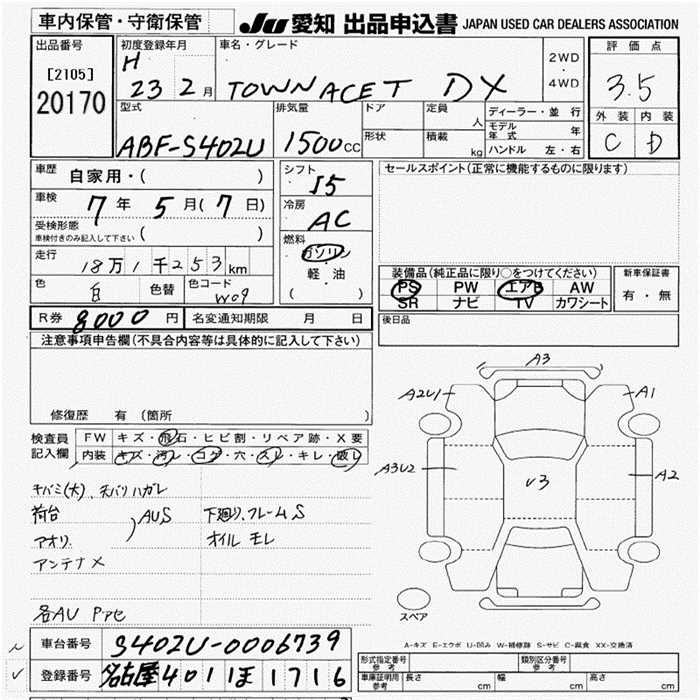 車内保管・守衛保管
JU 愛知 出品申込書 JAPAN USED CAR DEALERS ASSOCIATION
出品番号
[2105]
20170
初度登録年月
H
23 2月
車名・グレード
TOWN ACE T DX
2WD
・
4WD
評価点
3.5
外装 内装
C D
型式
ABF-S402U
排気量
1500CC
ドア
形状
定員
人
積載
kg
ディーラー・並行
モデル年式 年
ハンドル 左・右
車歴 自家用・( )
車検 7年 5月(7日)
受検形態
車検付きのみ記入して下さい ( )
走行
18万1千253km
色 白 色替 色コード W09
シフト
I5
冷房
AC
燃料
ガソリン
軽・油
( )
セールスポイント(正常に機能するものに限ります)
装備品(純正品に限り○をつけてください)
PS PW エアB AW
SR ナビ TV カワシート
新車保証書
有・無
後日品
R券 8000円 名変通知期限 月 日
注意事項申告欄(不具合内容等は具体的に記入して下さい)
修復歴 有 (箇所 )
検査員
記入欄
FW キズ・飛石・ヒビ割・リペア跡・X要
内装 キズ・汚レ・コゲ・穴・スレ・キレ・破レ
キバミ(大)、天バリハガレ
荷台
アオリ
AUS
下廻り、フレームS
オイルモレ
アンテナX
各AU
A3
A2U1
A1
A3U2
U3
A2
スペア
A-キズ E-エクボ U-凹み W-補修跡 S-サビ C-腐食 XX-交換済
車台番号 S402U-0006739
登録番号 名古屋 401 ほ 1716
形式指定番号
参考
類別区分番号
参考
車庫証明用
参考
長さ cm 幅 cm 高さ cm